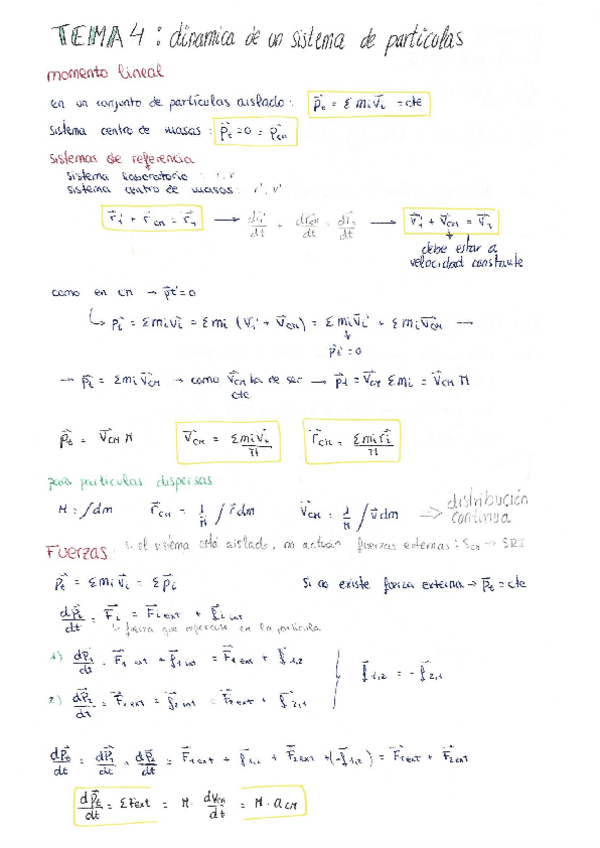 TEMA 4 : dinamica de un sistema de particulas
momento lineal
en un conjunto de partículas aislado : p⃗t = Σ mi v⃗i = cte
Sistema centro de masas : p⃗t = 0 = p⃗cM
Sistemas de referencia
sistema laboratorio : r, v
sistema centro de masas : r', v'
r⃗1' + r⃗CM = r⃗1 → dr⃗1'/dt + dr⃗CM/dt = dr⃗1/dt → v⃗1' + v⃗CM = v⃗1
debe estar a
velocidad constante
como en CM → p⃗t' = 0
p⃗t = Σ mi v⃗i = Σ mi (v⃗i' + v⃗CM) = Σ mi v⃗i' + Σ mi v⃗CM →
p⃗t' = 0
→ p⃗t = Σ mi v⃗CM → como v⃗CM ha de ser → p⃗t = v⃗CM Σ mi = v⃗CM M
cte
p⃗t = v⃗CM M v⃗CM = Σ mi v⃗i / M r⃗CM = Σ mi r⃗i / M
para particulas dispersas
M = ∫ dm r⃗CM = 1/M ∫ r⃗ dm v⃗CM = 1/M ∫ v⃗ dm ⇒ distribución
continua
Fuerzas : si el sistema está aislado, no actúan fuerzas externas : SCM → SRI
p⃗t = Σ mi v⃗i = Σ p⃗i Si no existe fuerza externa → p⃗t = cte
dp⃗i/dt = F⃗i = F⃗i ext + f⃗i int
fuerza que repercute en la partícula
1) dp⃗1/dt = F⃗1 ext + f⃗1 int = F⃗1 ext + f⃗1,2
f⃗1,2 = - f⃗2,1
2) dp⃗2/dt = F⃗2 ext + f⃗2 int = F⃗2 ext + f⃗2,1
dp⃗t/dt = dp⃗1/dt + dp⃗2/dt = F⃗1 ext + f⃗1,2 + F⃗2 ext + (-f⃗1,2) = F⃗1 ext + F⃗2 ext
dp⃗t/dt = Σ Fext = M · dvCM/dt = M · aCM